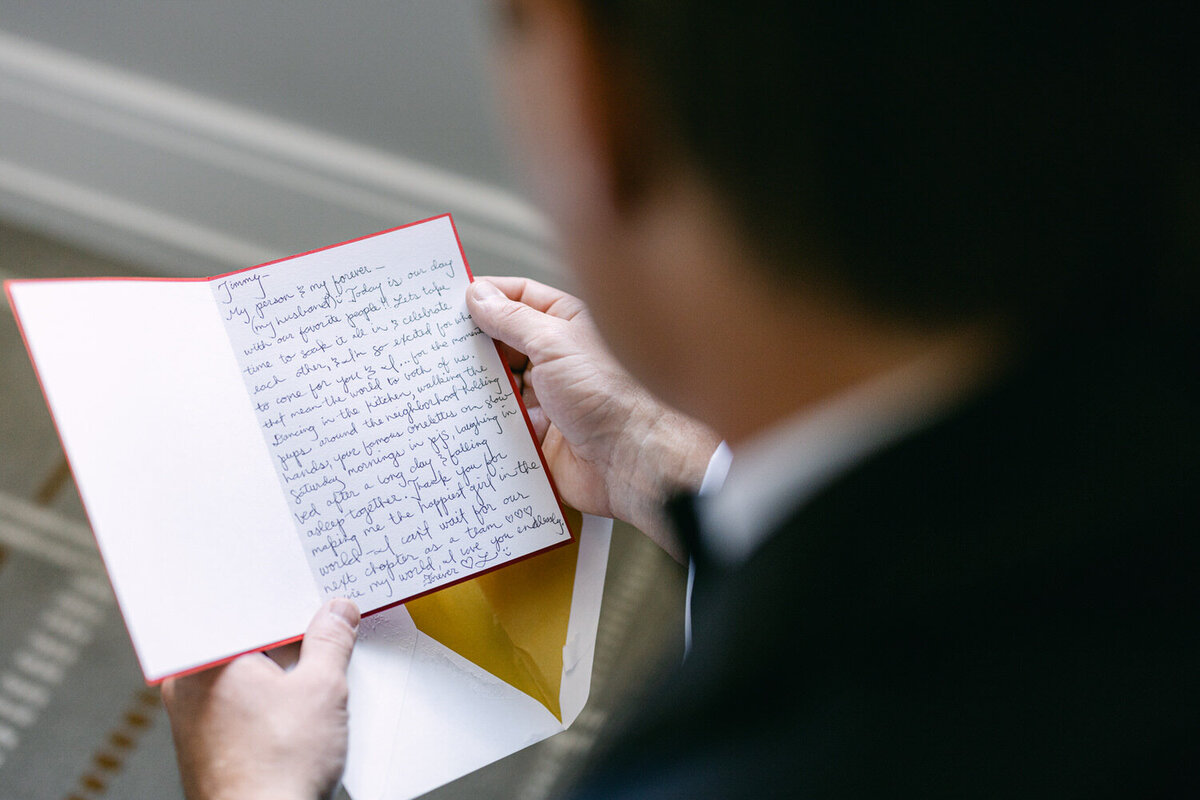 Jimmy-
My person & my forever-
(my husband). Today is our day
with our favorite people!! Let's take
time to soak it all in & celebrate
each other, & I'm so excited for what
to come for you & I... for the moments
that mean the world to both of us.
Dancing in the kitchen, walking the
pups around the neighborhood holding
hands, your famous omelettes on slow
Saturday mornings in pjs, laughing in
bed after a long day & falling
asleep together. Thank you for
making me the happiest girl in the
world - I can't wait for our
next chapter as a team ♡♡♡
my world, I love you endlessly.
Forever ♡ L :)